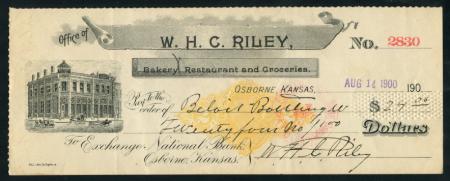 Office of
W. H. C. RILEY,
No. 2830
Bakery, Restaurant and Groceries.
OSBORNE, KANSAS, AUG 14 1900 190
Pay To the order of Beloit Bottling W $24.00
Twenty four No/100 Dollars
To Exchange National Bank,
Osborne, Kansas.
W. H. C. Riley